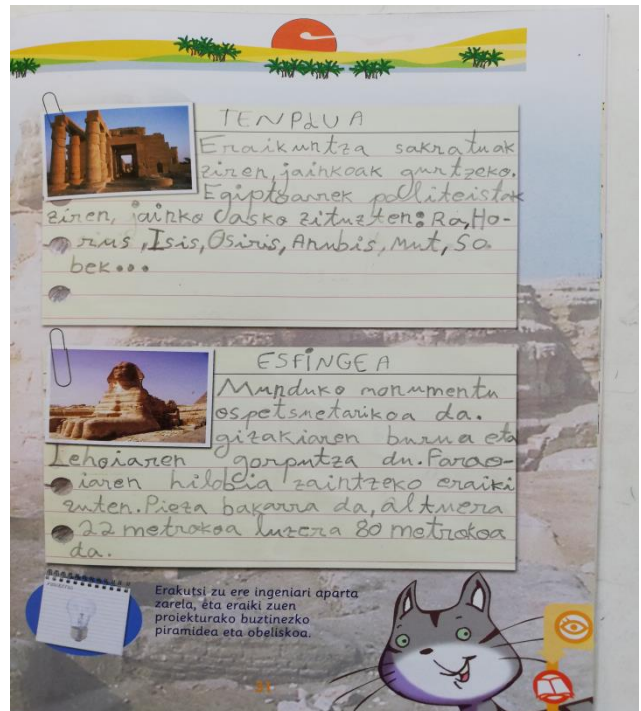 TENPLUA
Eraikuntza sakratuak
ziren, jainkoak gurtzeko.
Egiptoarrek politeistak
ziren, jainko dasko zituzten: Ra, Ho-
rius, Isis, Osiris, Anubis, Mut, So
bek...
ESFINGEA
Munduko monumentu
ospetsuetarikoa da.
gizakiaren burua eta
Lehoiaren gorputza du. Farao-
iaren hilobia zaintzeko eraiki
zuten. Pieza bakarra da, altuera
22 metrokoa luzera 80 metrokoa
da.
Erakutsi zu ere ingeniari aparta
zarela, eta eraiki zuen
proiekturako buztinezko
piramidea eta obeliskoa.